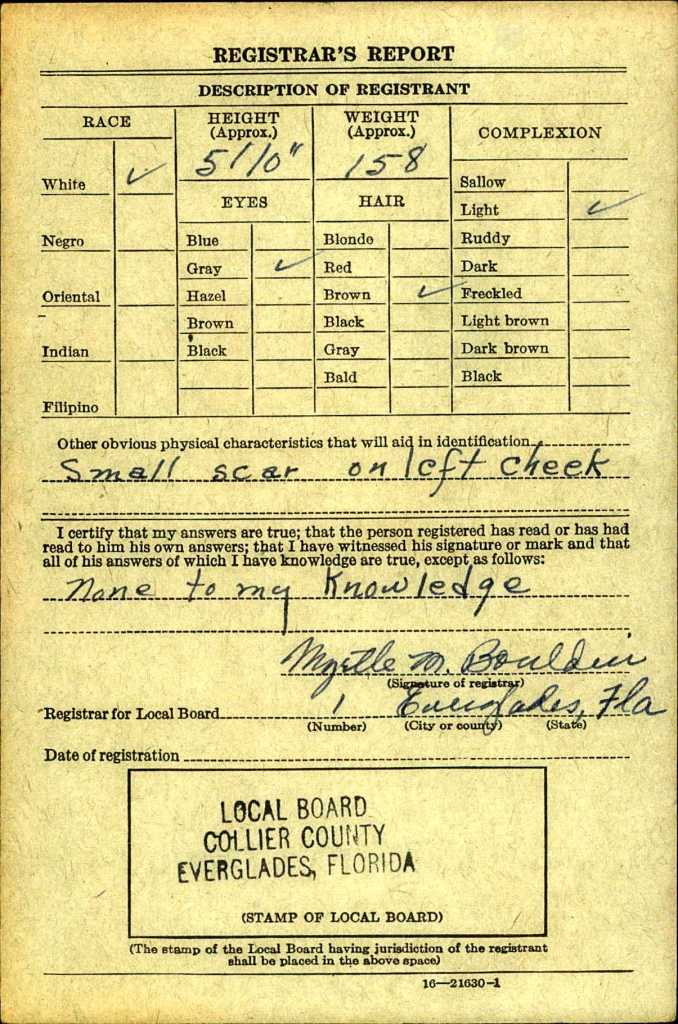 REGISTRAR'S REPORT
DESCRIPTION OF REGISTRANT
RACE
HEIGHT
(Approx.)
WEIGHT
(Approx.)
COMPLEXION
5'10"
158
White ✓
Sallow
EYES
HAIR
Light ✓
Negro
Blue
Blonde
Ruddy
Gray ✓
Red
Dark
Oriental
Hazel
Brown ✓
Freckled
Brown
Black
Light brown
Indian
Black
Gray
Dark brown
Bald
Black
Filipino
Other obvious physical characteristics that will aid in identification
Small scar on left cheek
I certify that my answers are true; that the person registered has read or has had
read to him his own answers; that I have witnessed his signature or mark and that
all of his answers of which I have knowledge are true, except as follows:
None to my knowledge
Myrtle M. Bouldin
(Signature of registrar)
Registrar for Local Board 1 Everglades, Fla
(Number) (City or county) (State)
Date of registration
LOCAL BOARD
COLLIER COUNTY
EVERGLADES, FLORIDA
(STAMP OF LOCAL BOARD)
(The stamp of the Local Board having jurisdiction of the registrant
shall be placed in the above space)
16—21630-1